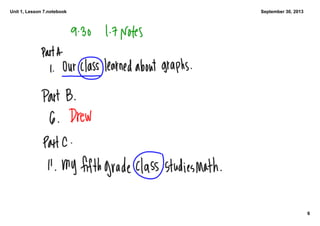 Unit 1, Lesson 7.notebook
September 30, 2013
9.30 1.7 Notes
Part A
1. Our class learned about graphs.
Part B.
6. Drew
Part C.
11. my fifth grade class studies math.
6